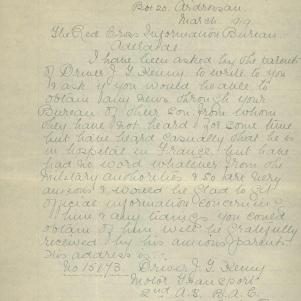 Box 20. Ardrossan.
March 1919.
The Red Cross Information Bureau.
Adelaide.
I have been asked by the parents
of Driver J G Kenny to write to you
& ask if you would be able to
obtain any news through your
Bureau of their son, from whom
they have not heard for some time
but have heard casually that he is
in hospital in France, but have
had no word whatever from the
Military authorities & so are very
anxious & would be glad to get
official information concerning
him & any tidings you could
obtain of him will be gratefully
received by his anxious parents
His address is :-
No 15173. Driver J. G. Kenny
Motor Transport
2nd A.S. B.A.C.